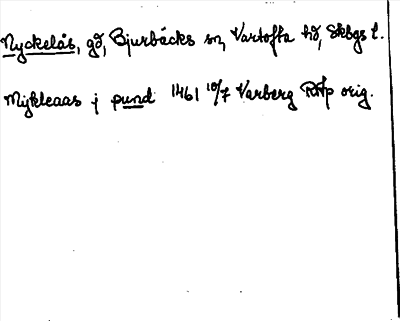 Nyckelås, gd, Bjurbäcks sn, Vartofta hd, Skbgs l.
Mykleaas j pund 1461 10/7 Varberg RAp orig.